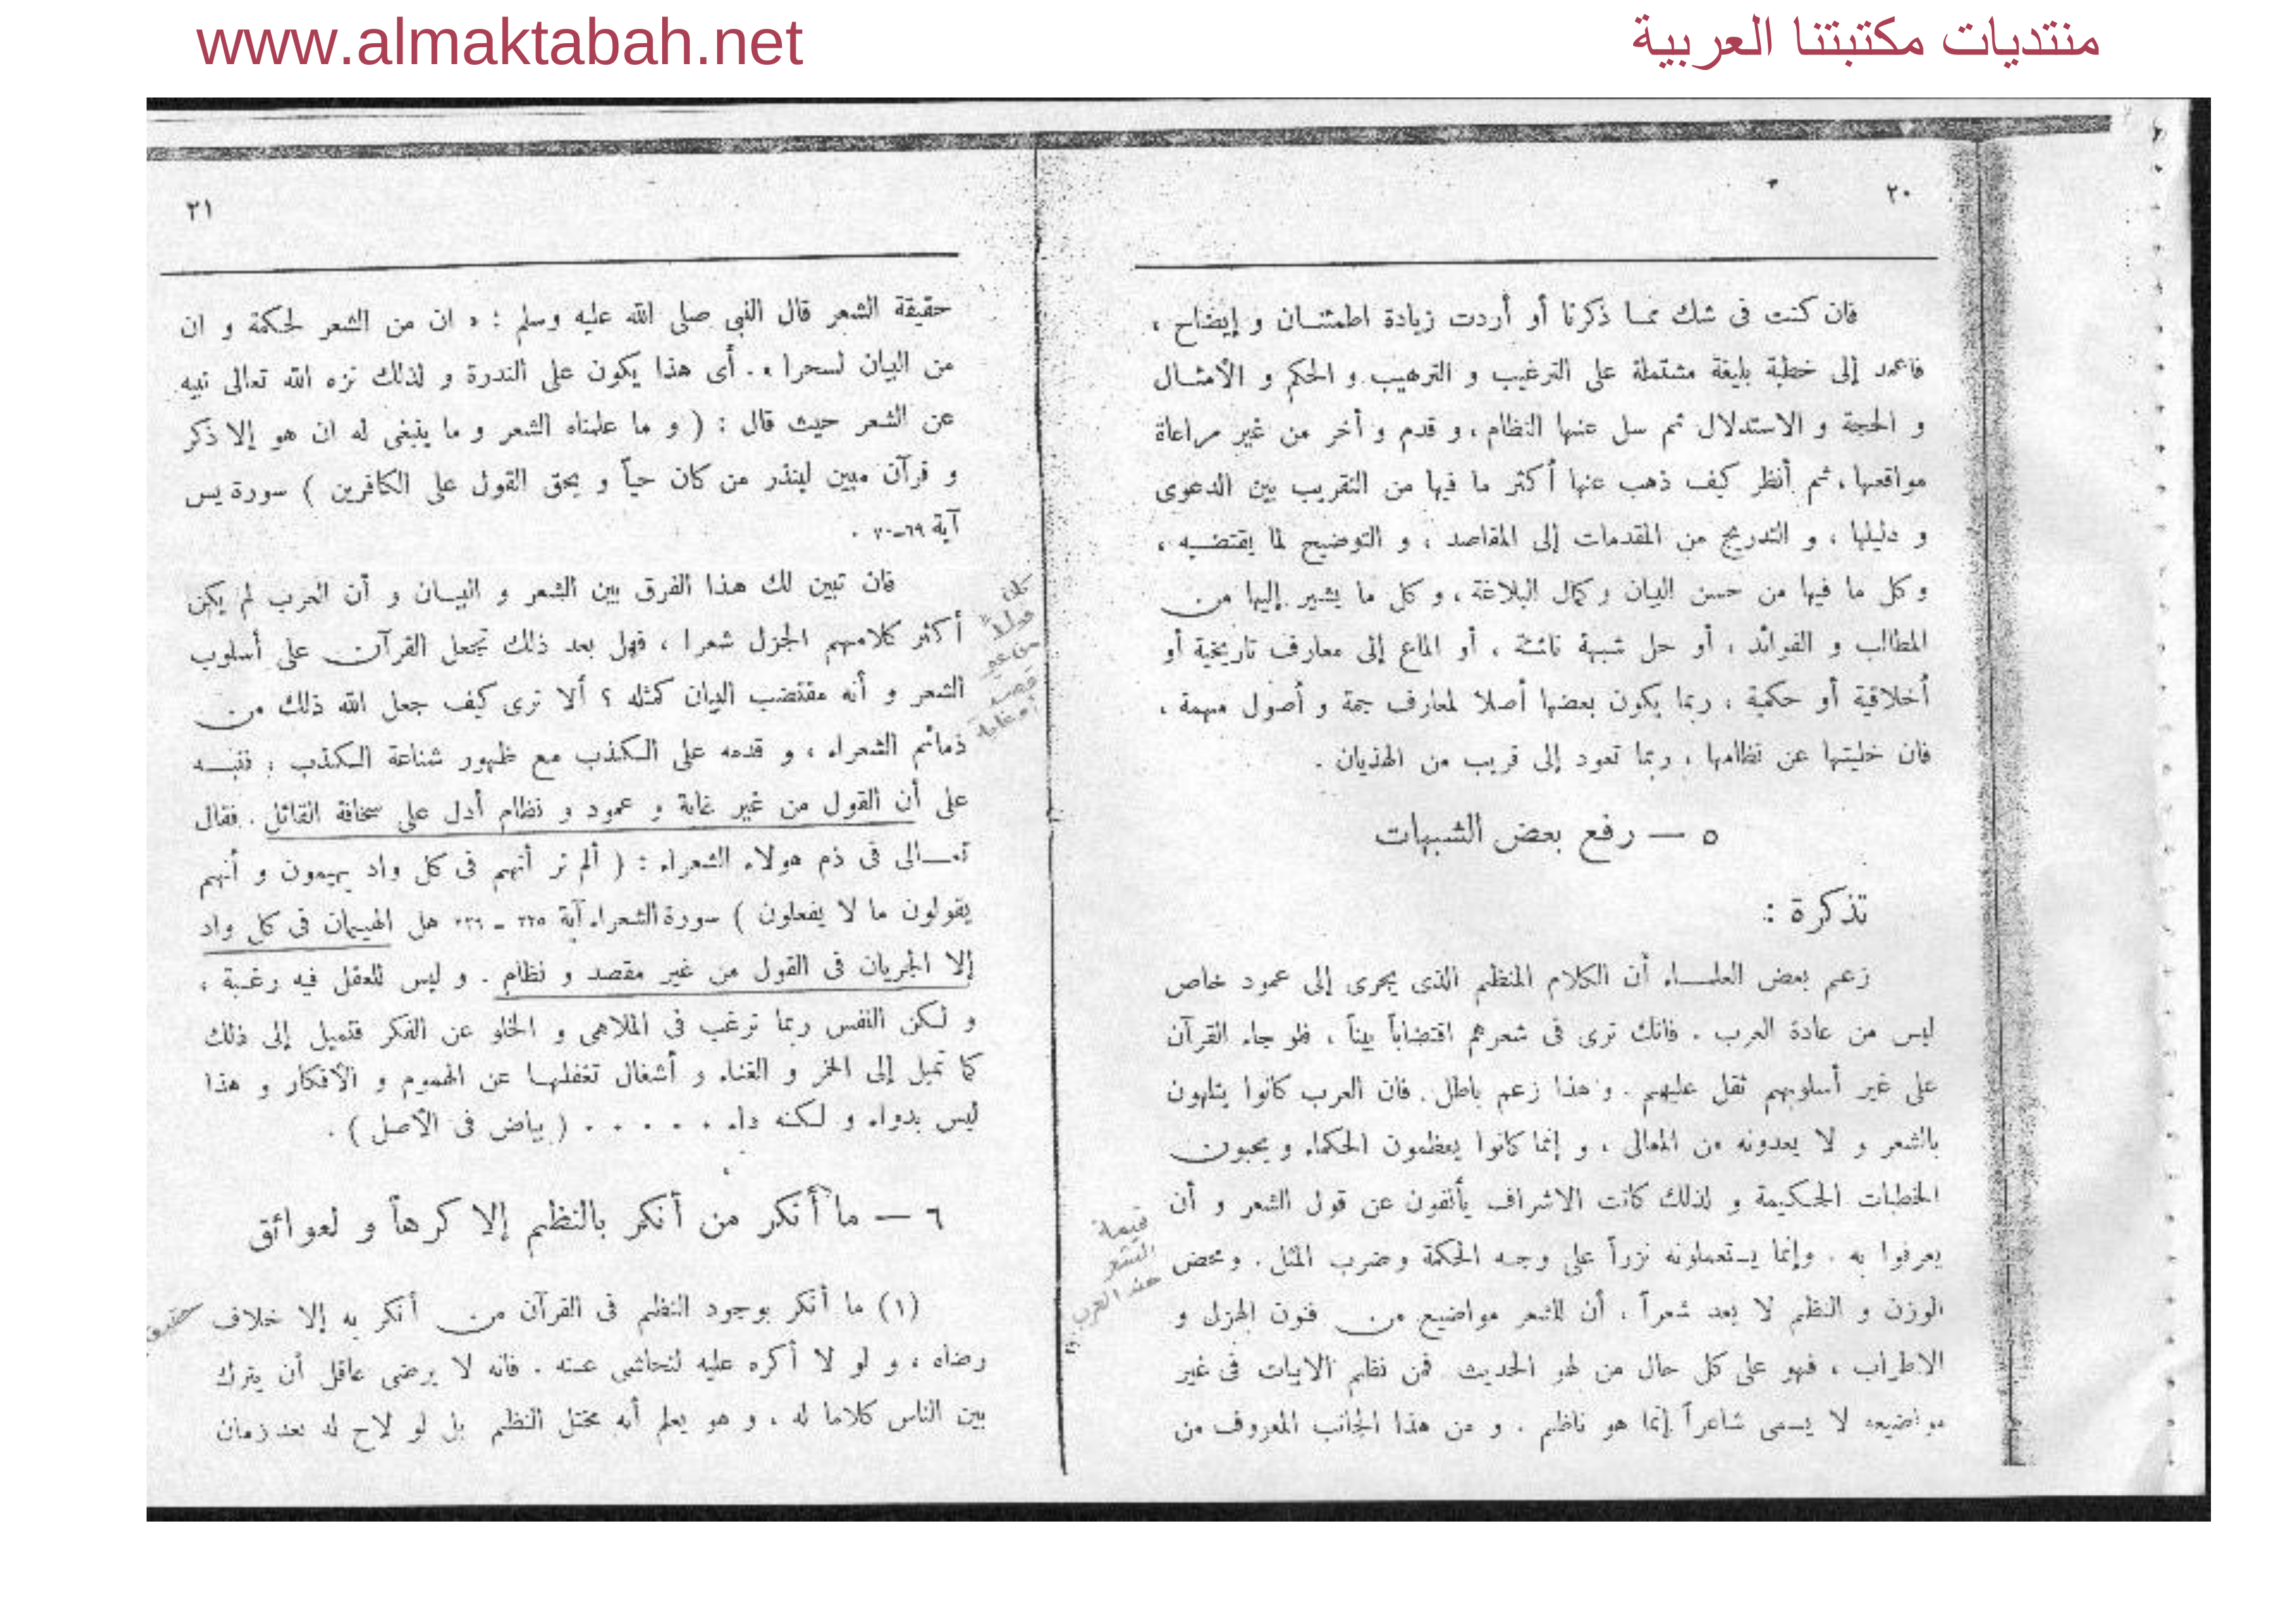 www.almaktabah.net
منتديات مكتبتنا العربية
٢٠
فان كنت فى شك مما ذكرنا أو أردت زيادة اطمئنان و إيضاح ،
فاعمد إلى خطبة بليغة مشتملة على الترغيب و الترهيب و الحكم و الأمثال
و الحجة و الاستدلال ثم سل عنها النظام ، و قدم و أخر من غير مراعاة
مواقعها ، ثم أنظر كيف ذهب عنها أكثر ما فيها من التقريب بين الدعوى
و دليلها ، و التدريج من المقدمات إلى المقاصد ، و التوضيح لما يقتضيه ،
و كل ما فيها من حسن البيان و كمال البلاغة ، و كل ما يشير إليها من
المطالب و الفوائد ، أو حل شبهة ناشئة ، أو الماع إلى معارف تاريخية أو
أخلاقية أو حكمية ، ربما يكون بعضها أصلا لمعارف جمة و أصول مهمة ،
فان خليتها عن نظامها ، ربما تعود إلى قريب من الهذيان .
٥ — رفع بعض الشبهات
تذكرة :
زعم بعض العلماء أن الكلام المنظم الذى يجرى إلى عمود خاص
ليس من عادة العرب . فانك ترى فى شعرهم اقتضاباً بيناً ، فلو جاء القرآن
على غير أسلوبهم ثقل عليهم . و هذا زعم باطل . فان العرب كانوا يتلهون
بالشعر و لا يعدونه من المعالى ، و إنما كانوا يعظمون الحكماء و يحبون
الخطبات الحكيمة و لذلك كانت الاشراف يأنفون عن قول الشعر و أن
يعرفوا به . وإنما يستعملونه نزراً على وجه الحكمة وضرب المثل . ومحض
الوزن و النظم لا يعد شعراً ، أن للشعر مواضيع من فنون الهزل و
الاطراب ، فهو على كل حال من لهو الحديث فمن نظم الابيات فى غير
مواضيعه لا يسمى شاعراً إنما هو ناظم . و من هذا الجانب المعروف من
قيمة
الشعر
عند العرب
٢١
حقيقة الشعر قال النبى صلى الله عليه وسلم : « ان من الشعر لحكمة و ان
من البيان لسحرا » . أى هذا يكون على الندرة و لذلك نزه الله تعالى نبيه
عن الشعر حيث قال : ( و ما علمناه الشعر و ما ينبغى له ان هو إلا ذكر
و قرآن مبين لينذر من كان حياً و يحق القول على الكافرين ) سورة يس
آية ٦٩-٧٠ .
فان تبين لك هذا الفرق بين الشعر و البيان و أن العرب لم يكن
أكثر كلامهم الجزل شعرا ، فهل بعد ذلك تجعل القرآن على أسلوب
الشعر و أنه مقتضب البيان كمثله ؟ ألا ترى كيف جعل الله ذلك من
ذمائم الشعراء ، و قدمه على الكذب مع ظهور شناعة الكذب ، فنبه
على أن القول من غير غاية و عمود و نظام أدل على سخافة القائل . فقال
تعالى فى ذم هولاء الشعراء : ( ألم تر أنهم فى كل واد يهيمون و أنهم
يقولون ما لا يفعلون ) سورة الشعراء آية ٢٢٥ - ٢٢٦ هل الهيمان فى كل واد
إلا الجريان فى القول من غير مقصد و نظام . و ليس للعقل فيه رغبة ،
و لكن النفس ربما ترغب فى الملاهى و الخلو عن الفكر فتميل إلى ذلك
كما تميل إلى الخمر و الغناء و أشغال تغفلها عن الهموم و الأفكار و هذا
ليس بدواء و لكنه داء . . . . . ( بياض فى الأصل ) .
٦ — ما أنكر من أنكر بالنظم إلا كرهاً و لعوائق
(١) ما أنكر بوجود النظم فى القرآن من أنكر به إلا خلاف
رضاه ، و لو لا أكره عليه لتحاشى عنه . فانه لا يرضى عاقل أن يترك
بين الناس كلاما له ، و هو يعلم أنه مختل النظم بل لو لاح له بعد زمان